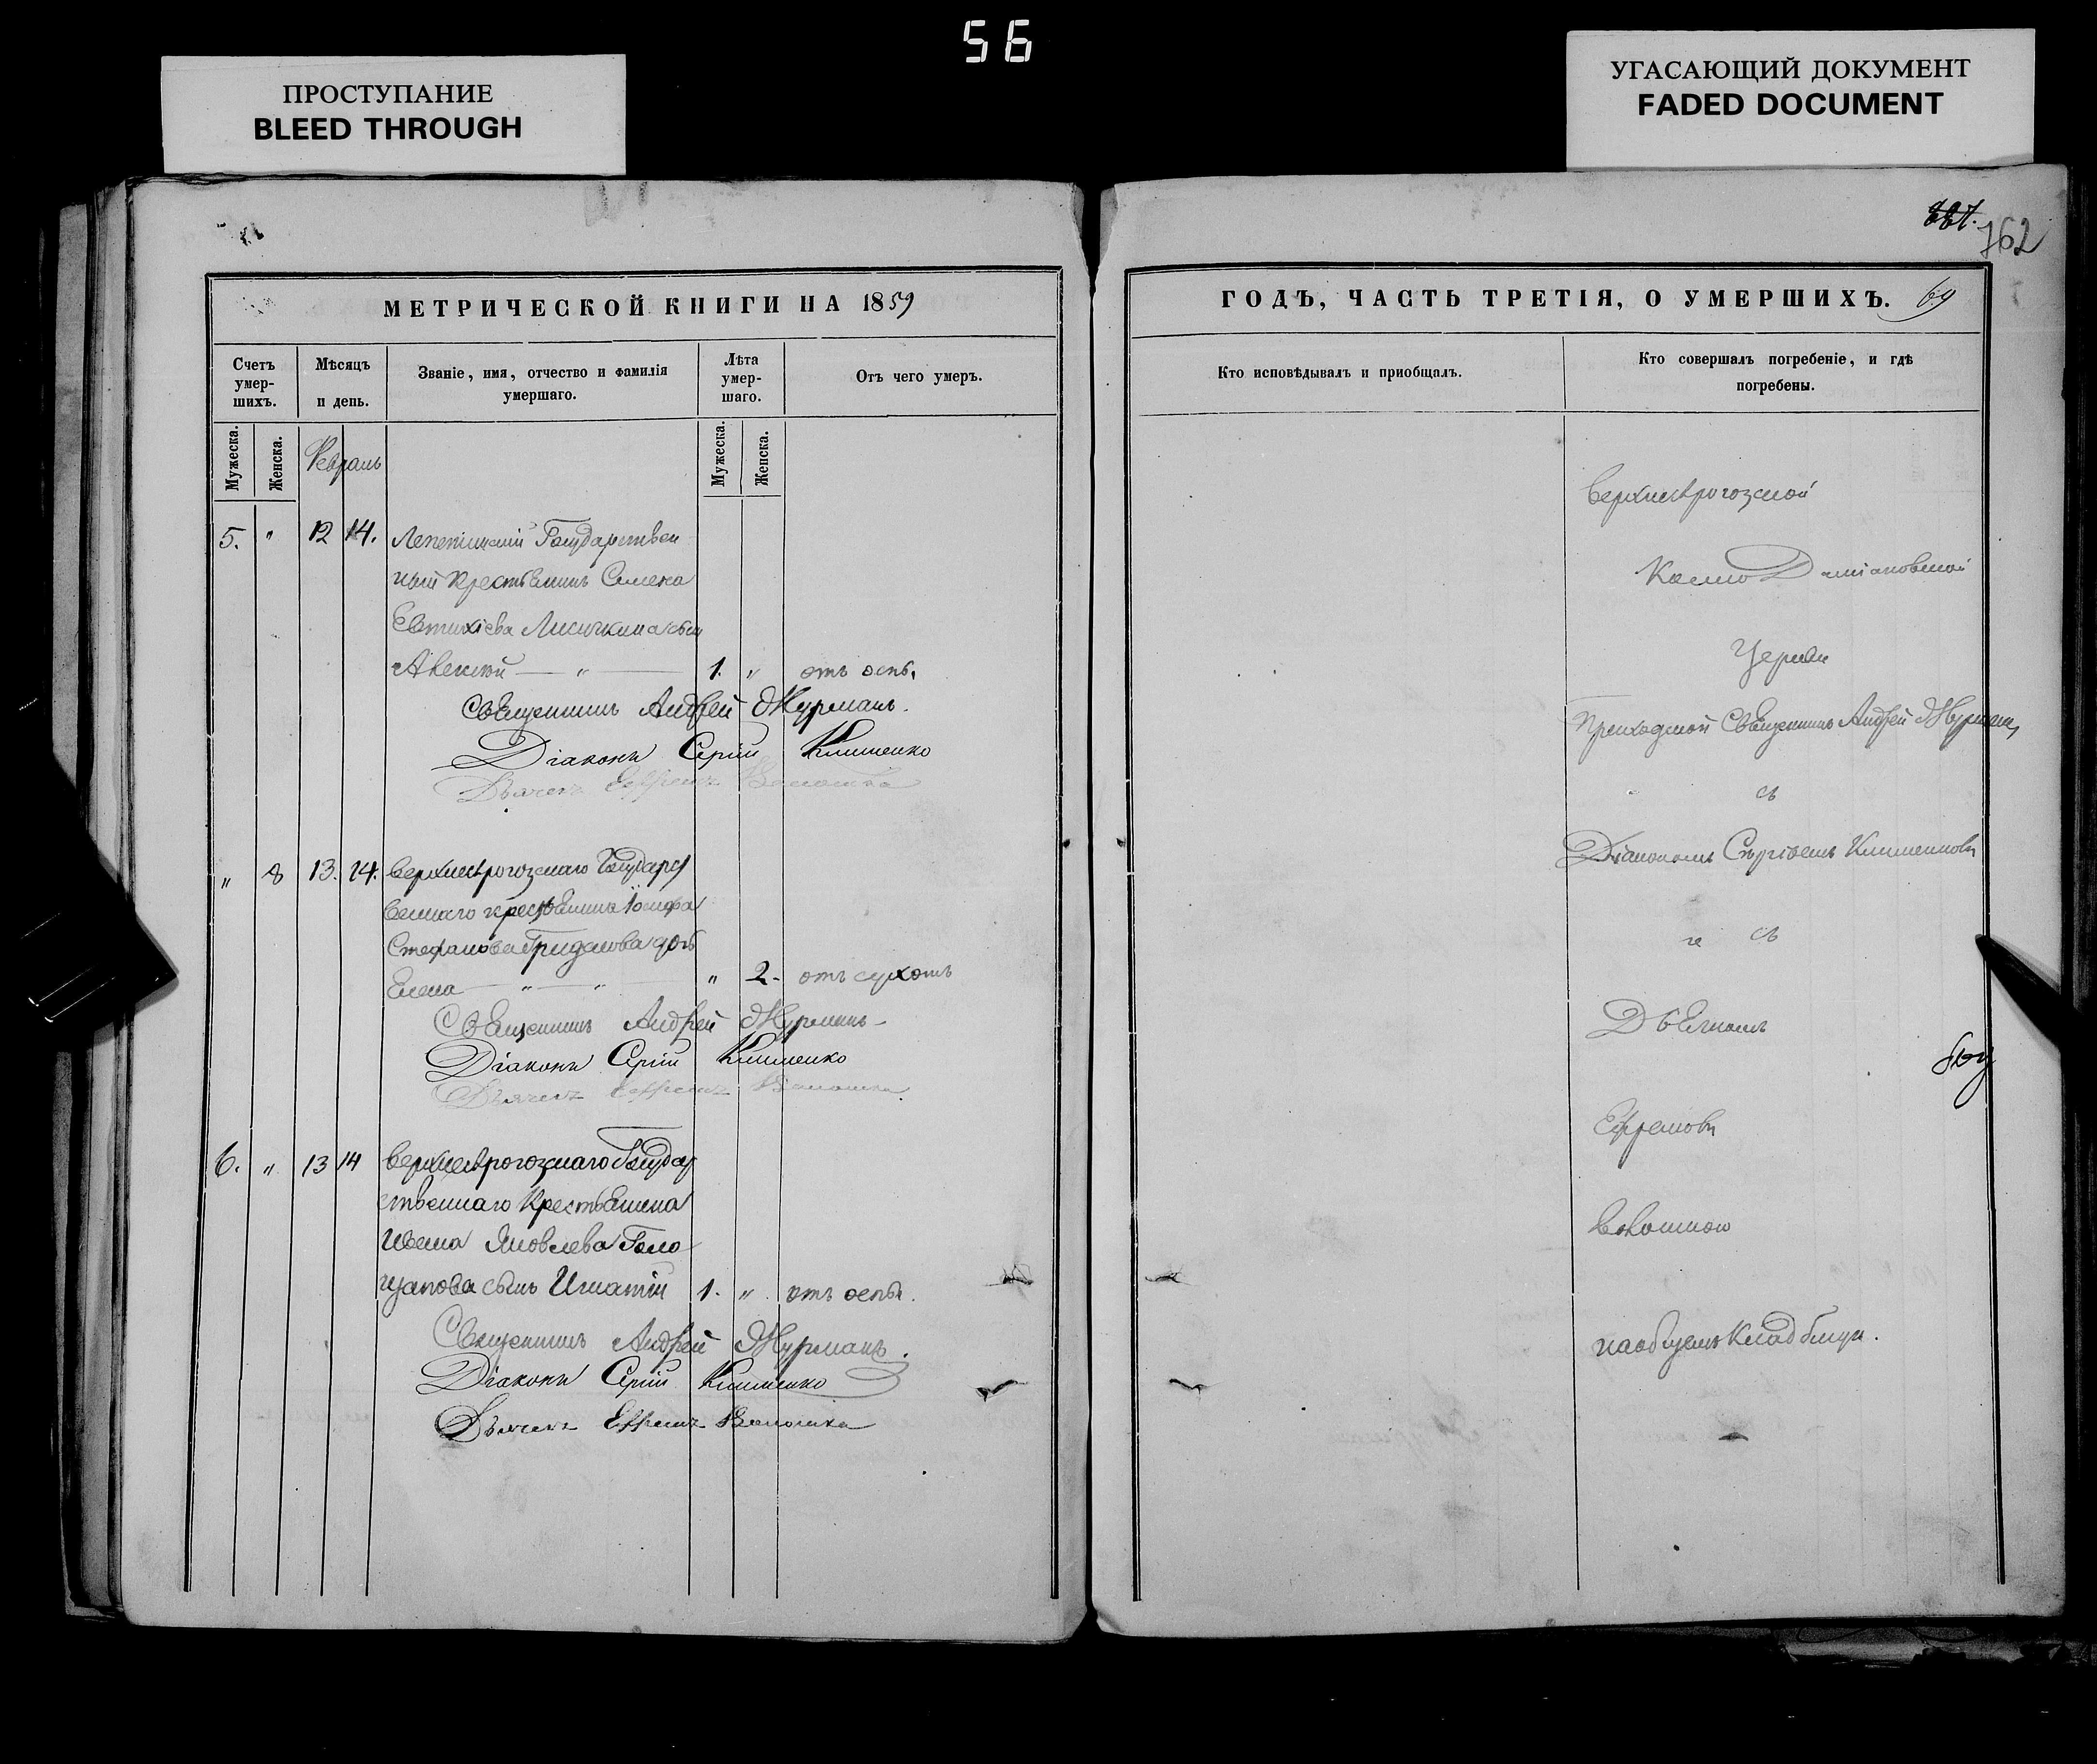 56
ПРОСТУПАНИЕ
BLEED THROUGH
УГАСАЮЩИЙ ДОКУМЕНТ
FADED DOCUMENT
762
МЕТРИЧЕСКОЙ КНИГИ НА 1859
Счетъ умер-шихъ.
Мѣсяцъ и день.
Званіе, имя, отчество и фамилія умершаго.
Лѣта умер-шаго.
Отъ чего умеръ.
Мужеска.
Женска.
Февраль
Мужеска.
Женска.
5. " 12 14. Лепетицкій Государствен
ный крестьянинъ Семена
Евтихіева Лисичкина сын
Алексѣй — " — 1. " отъ оспы.
Священникъ Андрей Журманъ.
Діаконъ Сергій Клименко
Дьячекъ Ефремъ Волошка
" 8 13. 14. Верхнерогозскаго Государст
веннаго крестьянина Іосифа
Стефанова Гридасова дочь
Елена — " — " — " 2. отъ сухотъ
Священникъ Андрей Журманъ
Діаконъ Сергій Клименко
Дьячекъ Ефремъ Волошка
6. " 13 14 Верхнерогозскаго Государ
ственнаго Крестьянина
Ивана Яковлева Голо
щапова сынъ Игнатій 1. " отъ оспы.
Священникъ Андрей Журманъ.
Діаконъ Сергій Клименко
Дьячекъ Ефремъ Волошка
ГОДЪ, ЧАСТЬ ТРЕТІЯ, О УМЕРШИХЪ. 69
Кто исповѣдывалъ и приобщалъ.
Кто совершалъ погребеніе, и гдѣ погребены.
Верхнерогозской
Космо Даміановской
Церкви
Приходской Священникъ Андрей Журманъ,
съ
Діакономъ Сергіемъ Клименковы
и съ
Дьячкомъ
Ефремовы
Волошкою
на общемъ Кладбищи.